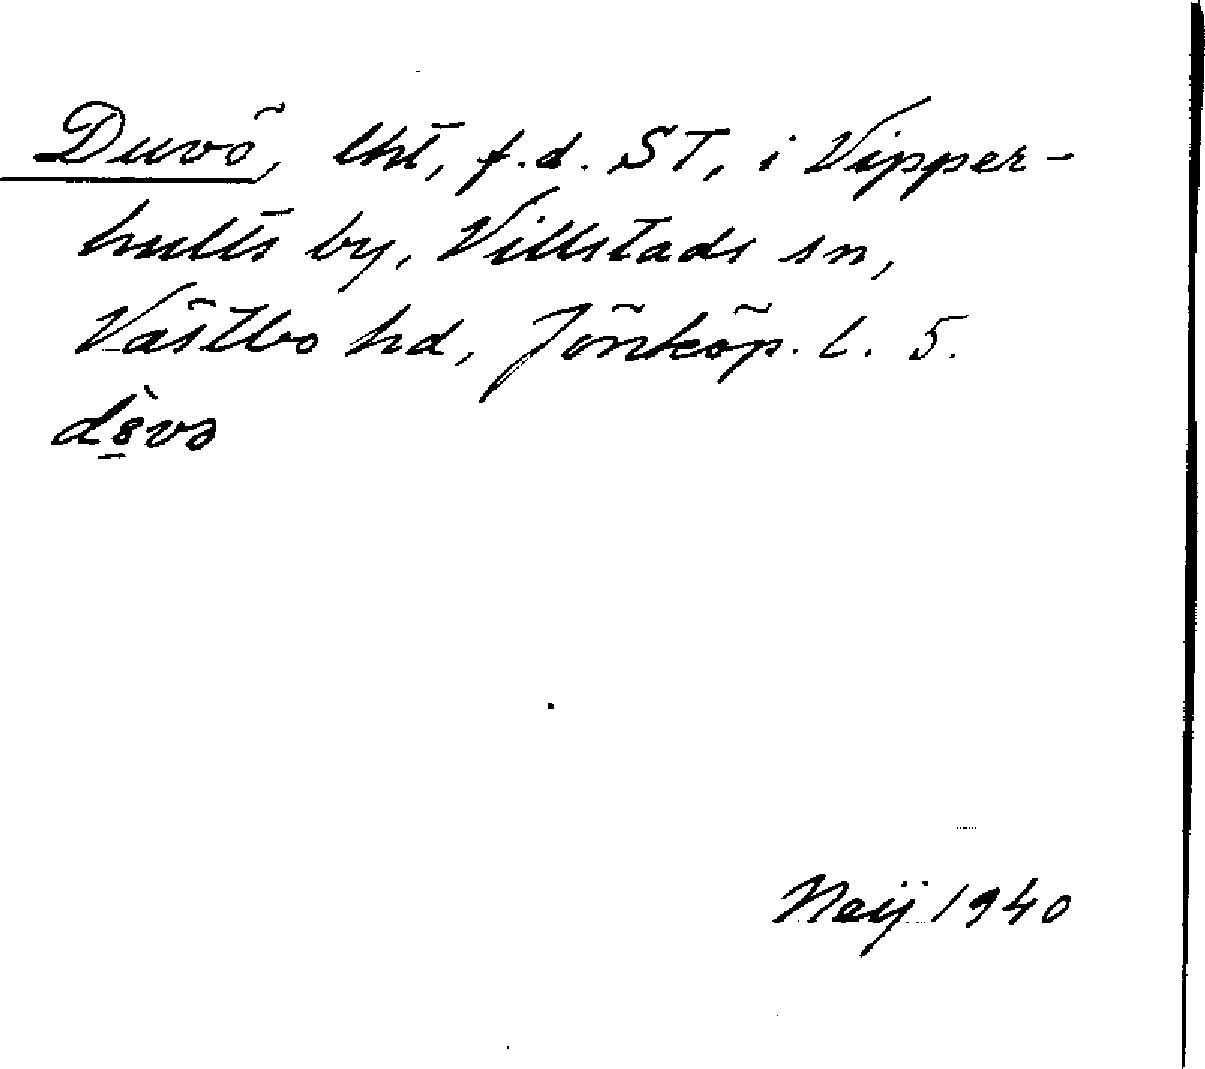 Duvö, lht, f.d. ST, i Vipper-
hults by, Villstads sn,
Västbo hd, Jönköp. l. 5.
Neij 1940